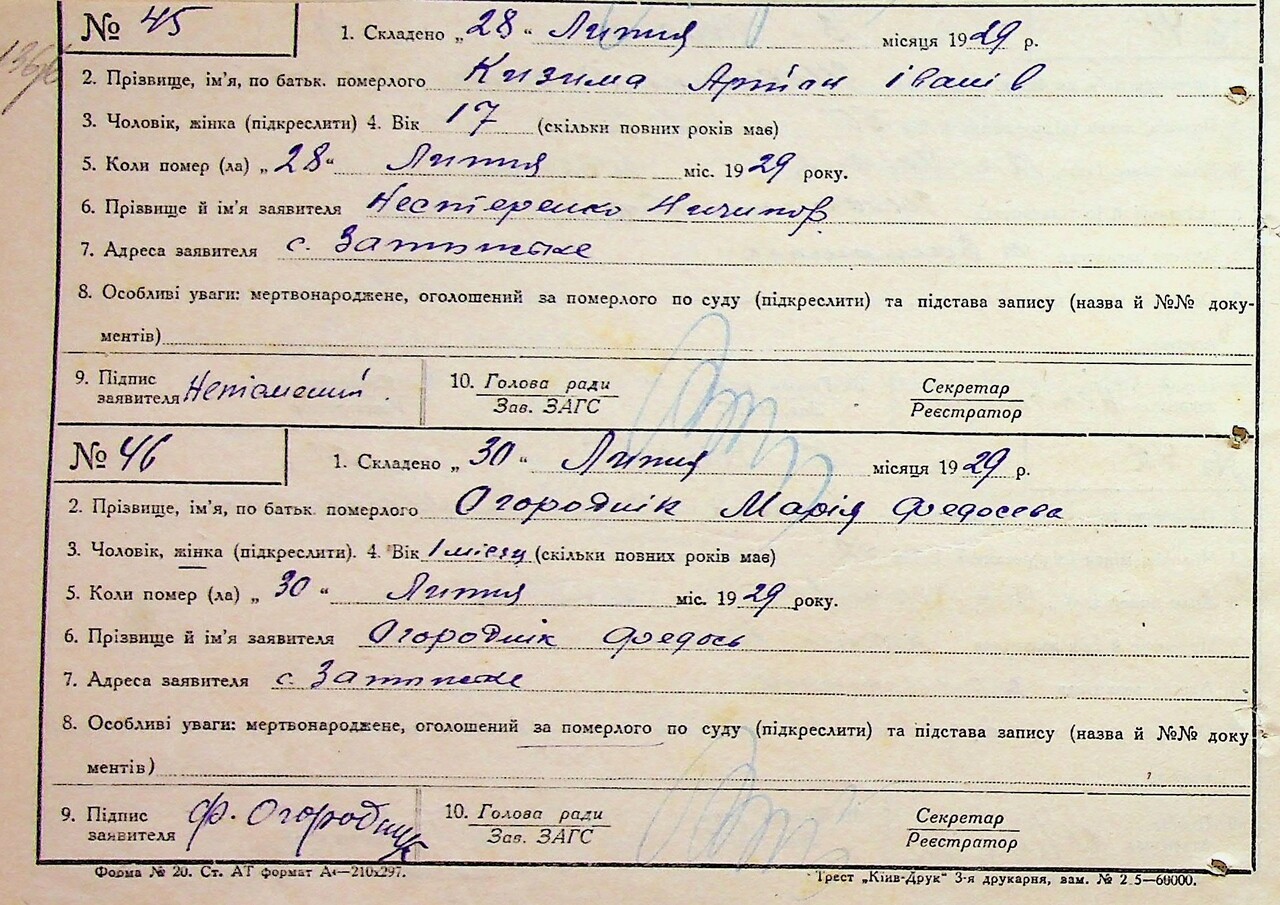 № 45
1. Складено „28“ Липня місяця 1929 р.
2. Прізвище, ім'я, по батьк. померлого Кизима Іванів
3. Чоловік, жінка (підкреслити) 4. Вік 17 (скільки повних років має)
5. Коли помер (ла) „28“ Липня міс. 1929 року.
6. Прізвище й ім'я заявителя Нестеренко Ничипор
7. Адреса заявителя с.
8. Особливі уваги: мертвонароджене, оголошений за померлого по суду (підкреслити) та підстава запису (назва й №№ доку-
ментів)
9. Підпис
заявителя
10. Голова ради
Зав. ЗАГС
Секретар
Реєстратор
№ 46
1. Складено „30“ Липня місяця 1929 р.
2. Прізвище, ім'я, по батьк. померлого Огороднік Марія Федосева
3. Чоловік, жінка (підкреслити). 4. Вік 1 місяц (скільки повних років має)
5. Коли помер (ла) „30“ Липня міс. 1929 року.
6. Прізвище й ім'я заявителя Огороднік Федось
7. Адреса заявителя с.
8. Особливі уваги: мертвонароджене, оголошений за померлого по суду (підкреслити) та підстава запису (назва й №№ доку
ментів)
9. Підпис
заявителя Ф. Огородник
10. Голова ради
Зав. ЗАГС
Секретар
Реєстратор
Форма № 20. Ст. АТ формат А4—210х297.
Трест „Київ-Друк“ 3-я друкарня, зам. № 2 5—60000.